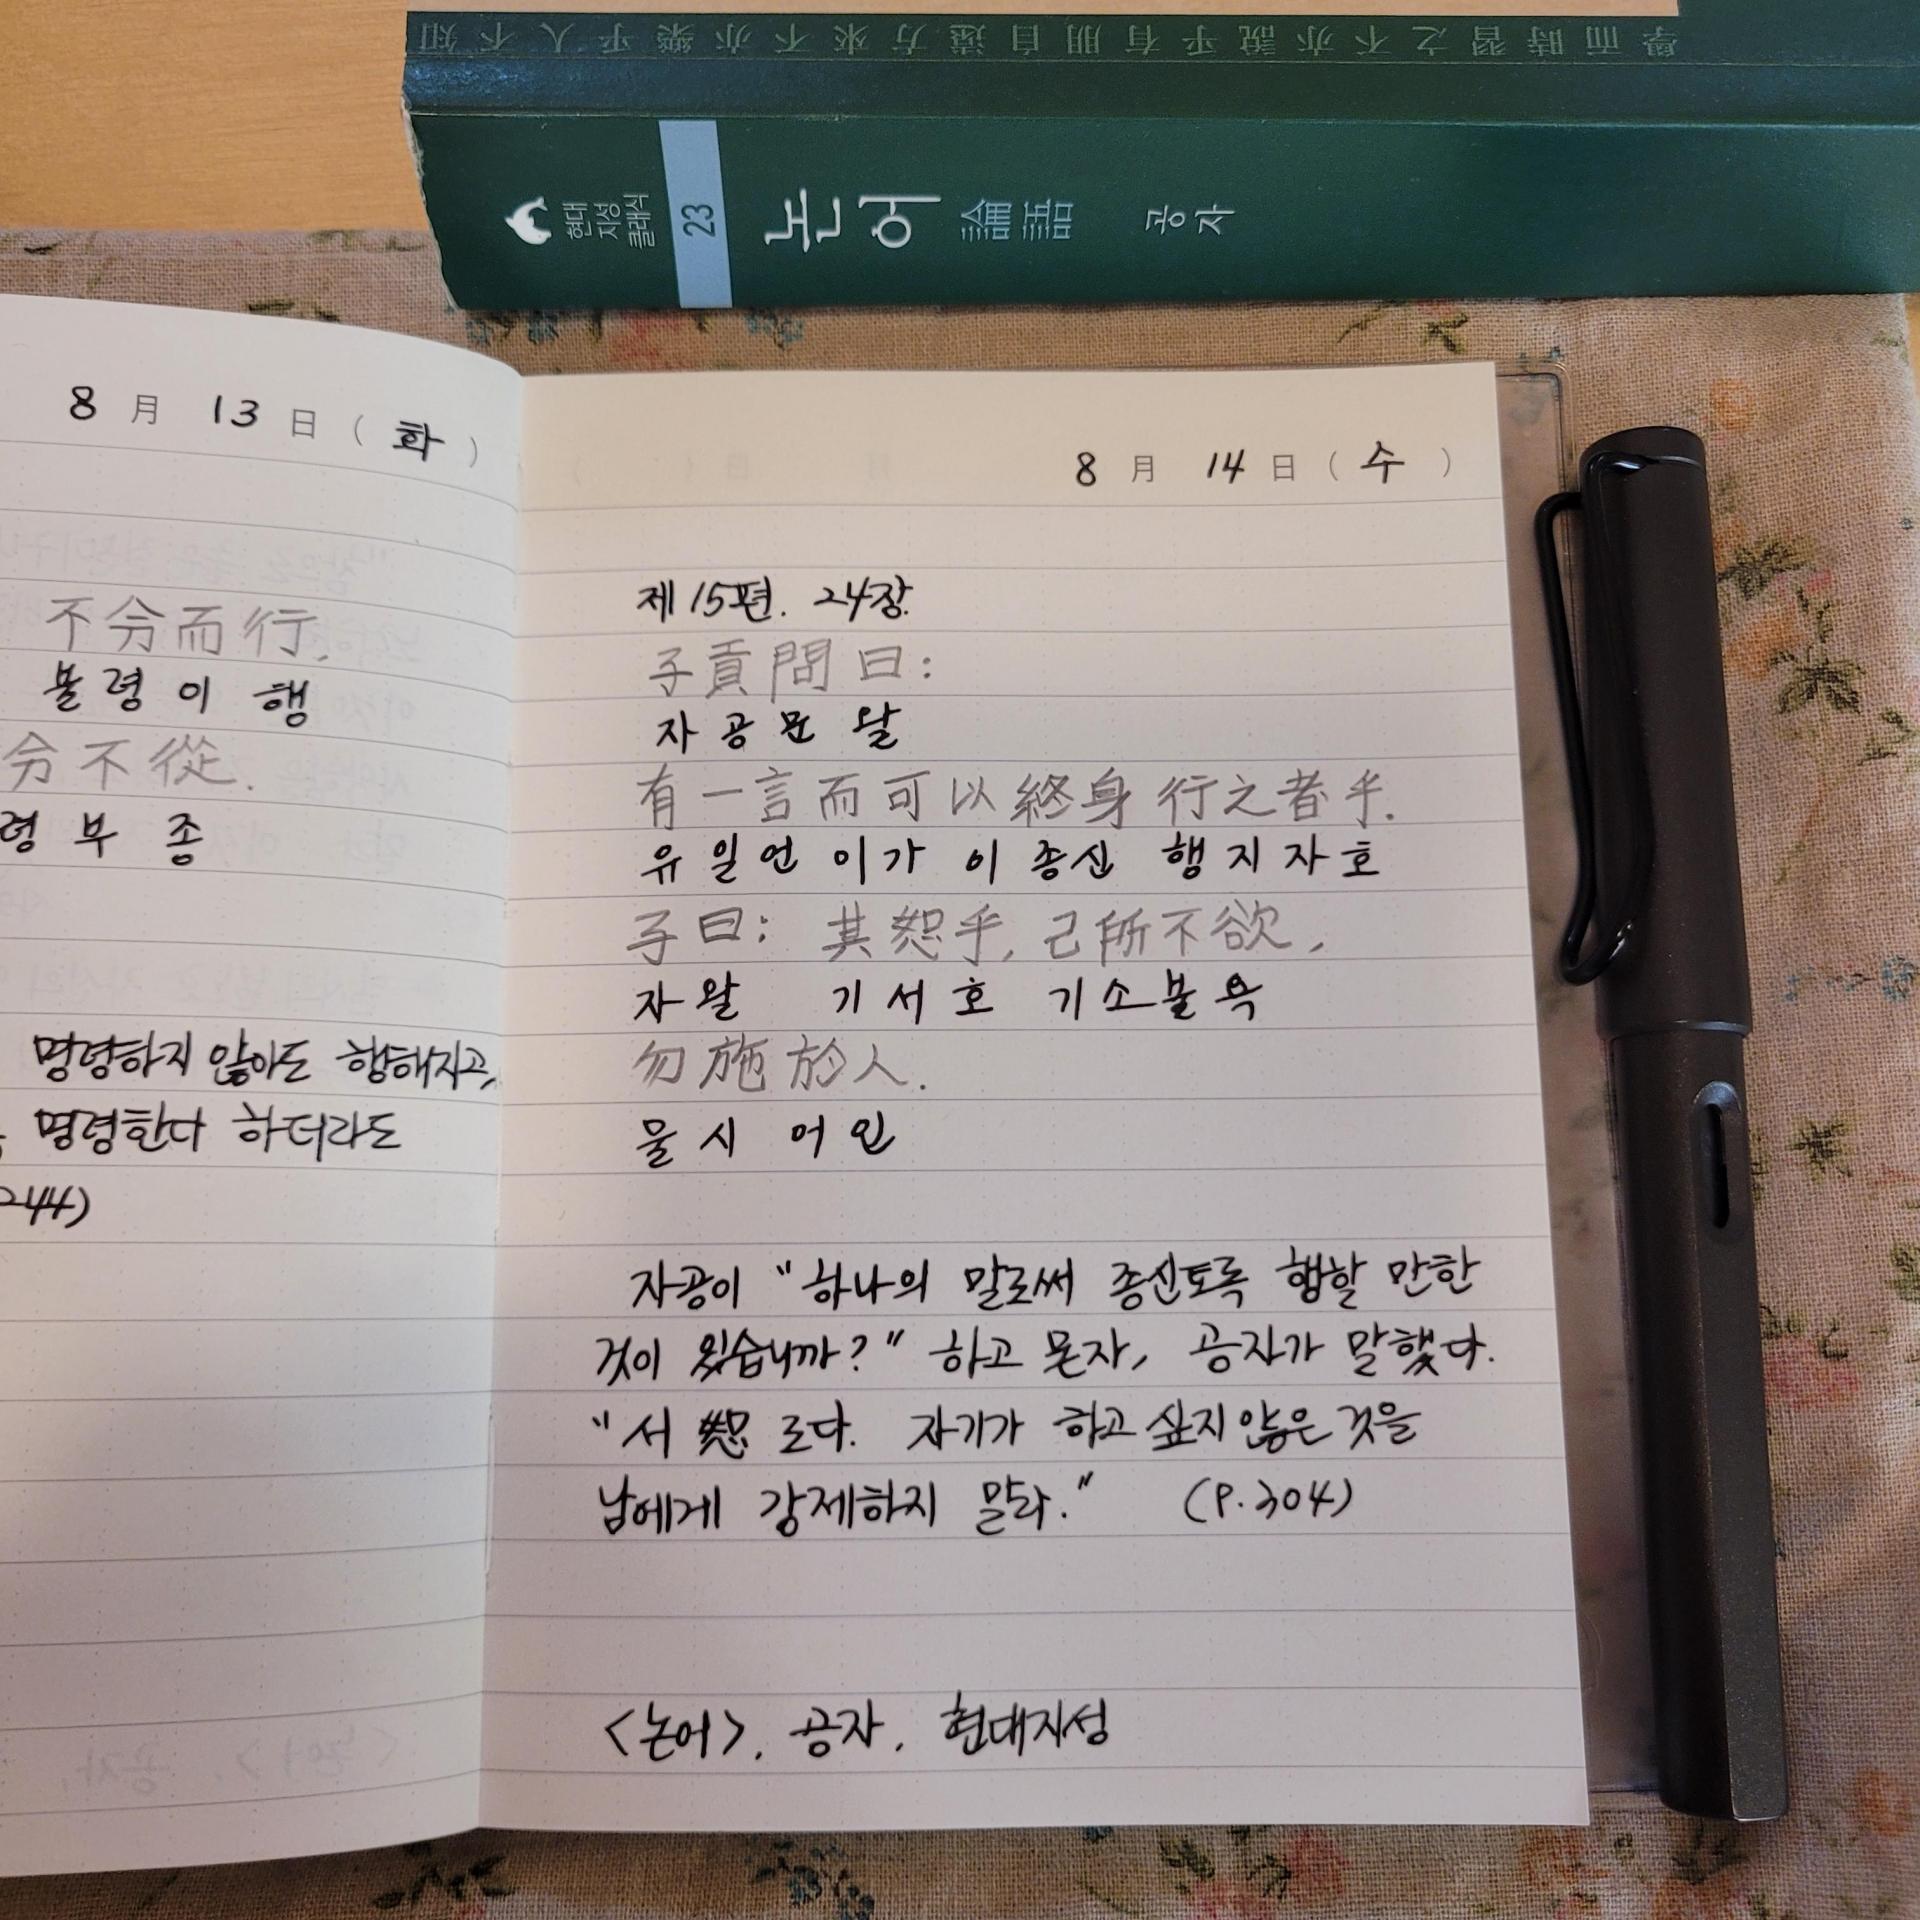 學而時習之不亦說乎有朋自遠方來不亦樂乎人不知
현대
지성
클래식
23
논어 論語 공자
8 月 13 日 ( 화 )
不令而行.
불령이행
令不從.
령부종
명령하지 않아도 행해지고,
명령한다 하더라도
244)
8 月 14 日 ( 수 )
제15편. 24장.
子貢問曰:
자공문왈
有一言而可以終身行之者乎.
유일언이가이종신행지자호
子曰: 其恕乎, 己所不欲,
자왈 기서호 기소불욕
勿施於人.
물시어인
자공이 "하나의 말로써 종신토록 행할 만한
것이 있습니까?" 하고 묻자, 공자가 말했다.
"서 恕 로다. 자기가 하고 싶지 않은 것을
남에게 강제하지 말라." (P.304)
<논어>, 공자, 현대지성